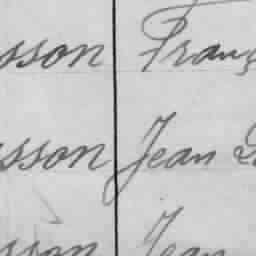 sson Franç
sson Jean
sson Jean